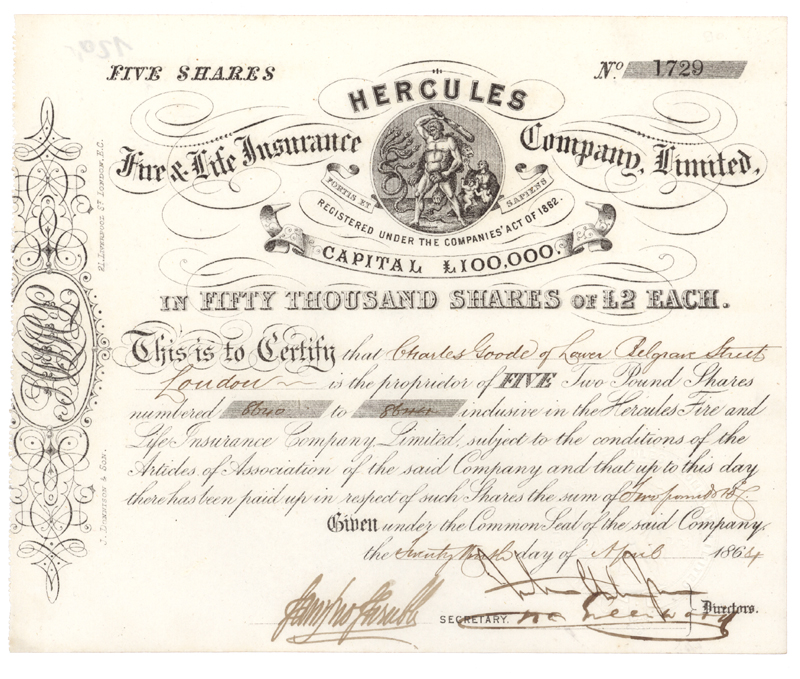 FIVE SHARES
No 1729
HERCULES
Fire & Life Insurance Company, Limited,
FORTIS ET SAPIENS
REGISTERED UNDER THE COMPANIES' ACT OF 1862.
CAPITAL £100,000.
IN FIFTY THOUSAND SHARES OF £2 EACH.
This is to Certify that Charles Goode of Lower Belgrave Street
London is the proprietor of FIVE Two Pound Shares
numbered 8640 to 8644 inclusive in the Hercules Fire and
Life Insurance Company, Limited, subject to the conditions of the
Articles of Association of the said Company and that up to this day
there has been paid up in respect of such Shares the sum of Two pounds
Given under the Common Seal of the said Company,
the day of April 1864
SECRETARY.
Directors.
21, LIVERPOOL ST LONDON, E.C.
J. DONNISON & SON.